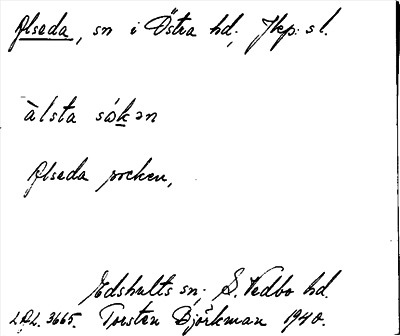 Alseda, sn i Östra hd; Jkp. sl.
àlsta sókən
Alseda socken,
Edshults sn; S. Vedbo hd.
LAL. 3665. Torsten Björkman 1940.